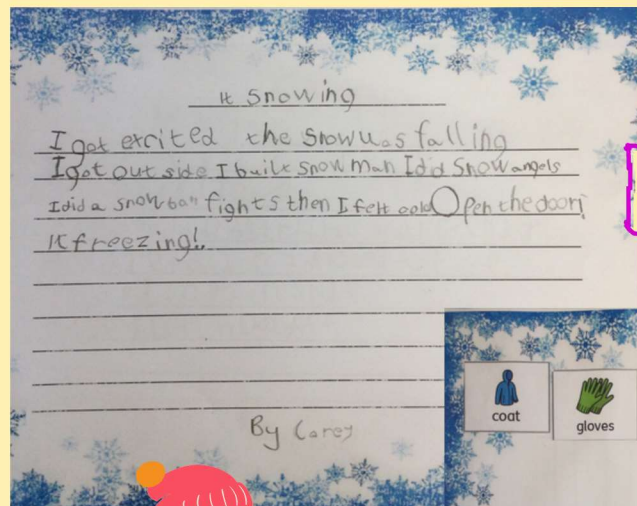 It Snowing
I got excited the snow was falling
I got out side I built snow man I did Snow angels
I did a snow ball fights then I felt cold Open the door!
It freezing!
By Carey
coat
gloves